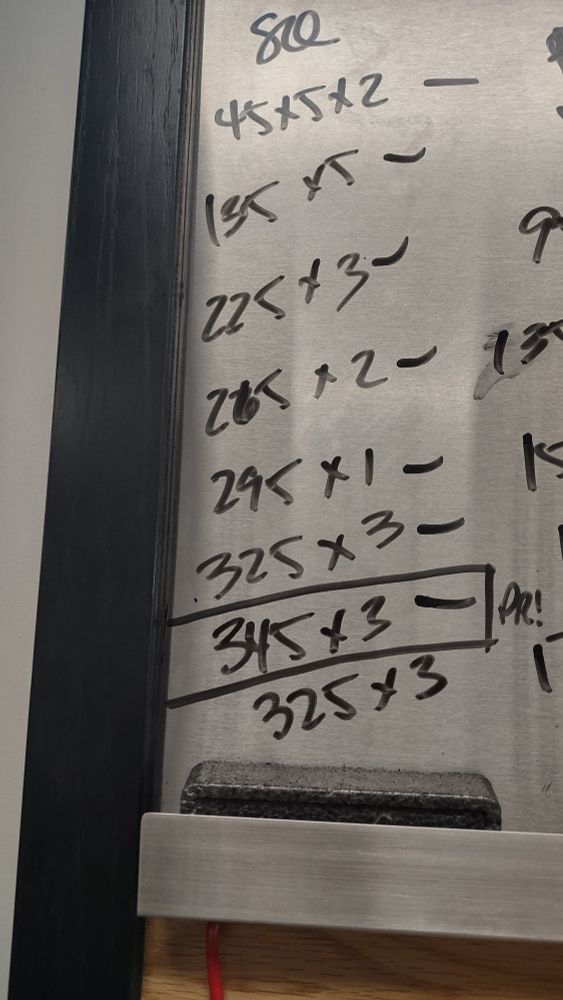 SQ
45x5x2 —
135 x5 —
225 x 3 —
265 x 2 —
295 x 1 —
325 x 3 —
345 x 3 — PR!
325 x 3
9
135
15
1
1